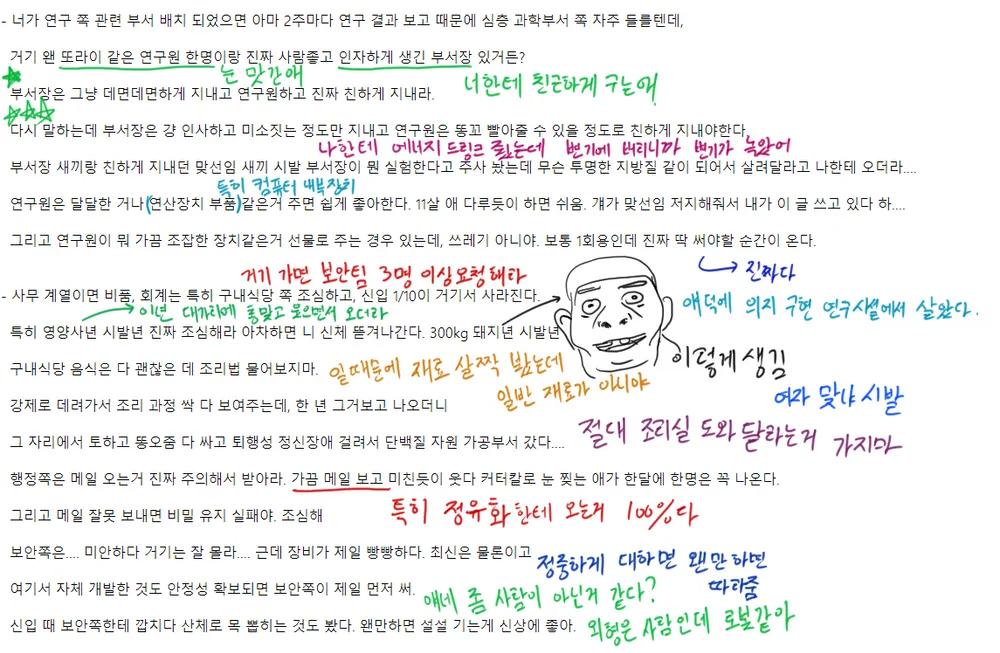 - 너가 연구 쪽 관련 부서 배치 되었으면 아마 2주마다 연구 결과 보고 때문에 심층 과학부서 쪽 자주 들를텐데,
거기 왠 또라이 같은 연구원 한명이랑 진짜 사람좋고 인자하게 생긴 부서장 있거든?
눈 맛간애
너한테 친근하게 구는애
부서장은 그냥 데면데면하게 지내고 연구원하고 진짜 친하게 지내라.
다시 말하는데 부서장은 걍 인사하고 미소짓는 정도만 지내고 연구원은 똥꼬 빨아줄 수 있을 정도로 친하게 지내야한다.
나한테 에너지 드링크 줬는데 변기에 버리니까 변기가 녹았어
부서장 새끼랑 친하게 지내던 맞선임 새끼 시발 부서장이 뭔 실험한다고 주사 놨는데 무슨 투명한 지방질 같이 되어서 살려달라고 나한테 오더라....
특히 컴퓨터 내부장치
연구원은 달달한 거나(연산장치 부품)같은거 주면 쉽게 좋아한다. 11살 애 다루듯이 하면 쉬움. 걔가 맞선임 저지해줘서 내가 이 글 쓰고 있다 하....
그리고 연구원이 뭐 가끔 조잡한 장치같은거 선물로 주는 경우 있는데, 쓰레기 아니야. 보통 1회용인데 진짜 딱 써야할 순간이 온다.
진짜다
거기 가면 보안팀 3명 이상요청해라
얘덕에 의지 구현 연구시설에서 살았다.
- 사무 계열이면 비품, 회계는 특히 구내식당 쪽 조심하고, 신입 1/10이 거기서 사라진다.
이년 대가리에 총맞고 웃으면서 오더라
특히 영양사년 시발년 진짜 조심해라 아차하면 니 신체 뜯겨나간다. 300kg 돼지년 시발년
이렇게 생김
구내식당 음식은 다 괜찮은 데 조리법 물어보지마.
일때문에 재료 살짝 봤는데
일반 재료가 아니야
여자 맞냐 시발
강제로 데려가서 조리 과정 싹 다 보여주는데, 한 년 그거보고 나오더니
그 자리에서 토하고 똥오줌 다 싸고 퇴행성 정신장애 걸려서 단백질 자원 가공부서 갔다....
절대 조리실 도와달라는거 가지마
행정쪽은 메일 오는거 진짜 주의해서 받아라. 가끔 메일 보고 미친듯이 웃다 커터칼로 눈 찢는 애가 한달에 한명은 꼭 나온다.
그리고 메일 잘못 보내면 비밀 유지 실패야. 조심해
특히 정유화한테 오는거 100%다
보안쪽은.... 미안하다 거기는 잘 몰라.... 근데 장비가 제일 빵빵하다. 최신은 물론이고
정중하게 대하면 왠만하면
따라줌
여기서 자체 개발한 것도 안정성 확보되면 보안쪽이 제일 먼저 써.
얘네 좀 사람이 아닌거 같다?
신입 때 보안쪽한테 깝치다 산체로 목 뽑히는 것도 봤다. 왠만하면 설설 기는게 신상에 좋아.
외형은 사람인데 로봇같아